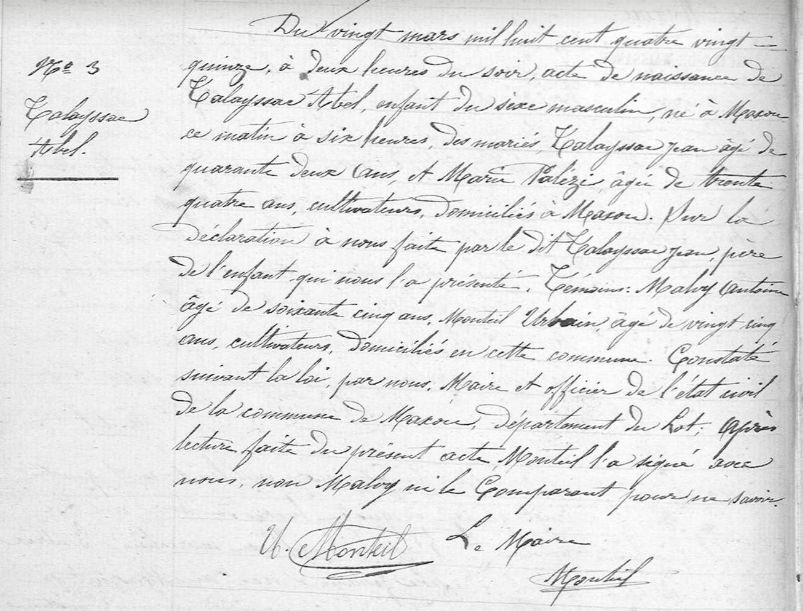 Du vingt mars mil huit cent quatre vingt
No 3
quinze, à deux heures du soir, acte de naissance de
Talayssac
Abel.
Talayssac Abel, enfant du sexe masculin, né à Maxou
ce matin à six heures, des mariés Talayssac Jean âgé de
quarante deux ans, et Marie Valézi, âgée de trente
quatre ans, cultivateurs, domiciliés à Maxou. Sur la
déclaration à nous faite par le dit Talayssac Jean, père
de l'enfant qui nous l'a présenté. Témoins: Malvy Antoine
âgé de soixante cinq ans, Monteil Urbain, âgé de vingt cinq
ans, cultivateurs, domiciliés en cette commune. Constaté
suivant la loi, par nous, Maire et officier de l'état civil
de la commune de Maxou, département du Lot; Après
lecture faite du présent acte, Monteil l'a signé avec
nous, non Malvy ni le Comparant pour ne savoir.
U. Monteil
Le Maire
Monteil